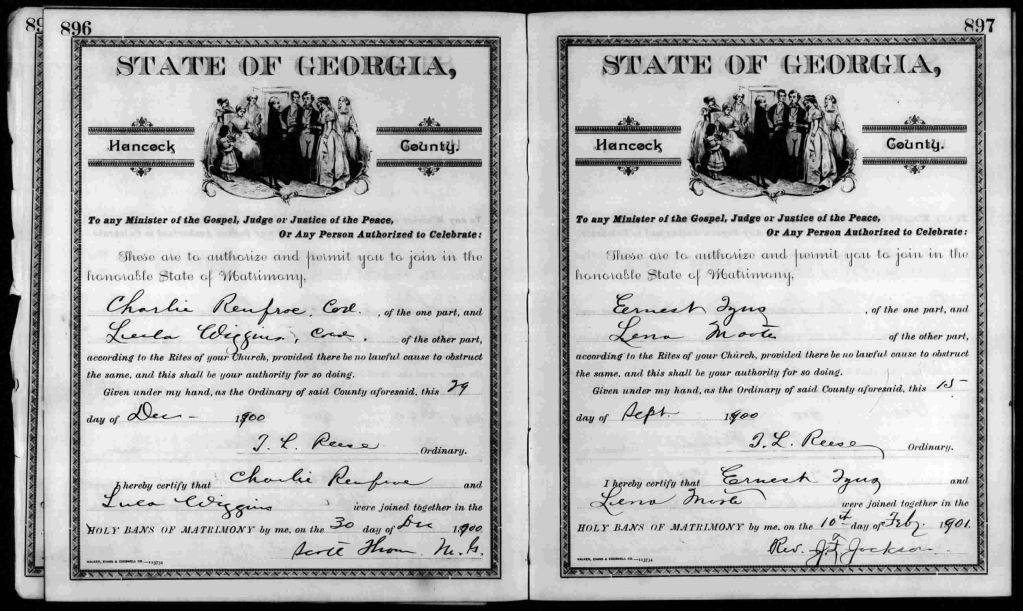 89
896
STATE OF GEORGIA,
Hancock County.
To any Minister of the Gospel, Judge or Justice of the Peace,
Or Any Person Authorized to Celebrate:
These are to authorize and permit you to join in the
honorable State of Matrimony,
Charlie Renfroe, Cod. , of the one part, and
Lula Wiggins, Cod. of the other part,
according to the Rites of your Church, provided there be no lawful cause to obstruct
the same, and this shall be your authority for so doing.
Given under my hand, as the Ordinary of said County aforesaid, this 29
day of Dec - 1900
T. L. Reese Ordinary.
I hereby certify that Charlie Renfroe and
Lula Wiggins were joined together in the
HOLY BANS OF MATRIMONY by me, on the 30 day of Dec 1900
Scott M. G.
897
STATE OF GEORGIA,
Hancock County.
To any Minister of the Gospel, Judge or Justice of the Peace,
Or Any Person Authorized to Celebrate:
These are to authorize and permit you to join in the
honorable State of Matrimony,
Ernest Tyus , of the one part, and
Lena of the other part,
according to the Rites of your Church, provided there be no lawful cause to obstruct
the same, and this shall be your authority for so doing.
Given under my hand, as the Ordinary of said County aforesaid, this 15
day of Sept. 1900
T. L. Reese Ordinary.
I hereby certify that Ernest Tyus and
Lena were joined together in the
HOLY BANS OF MATRIMONY by me, on the 10th day of Feby. 1901.
Rev. Jackson